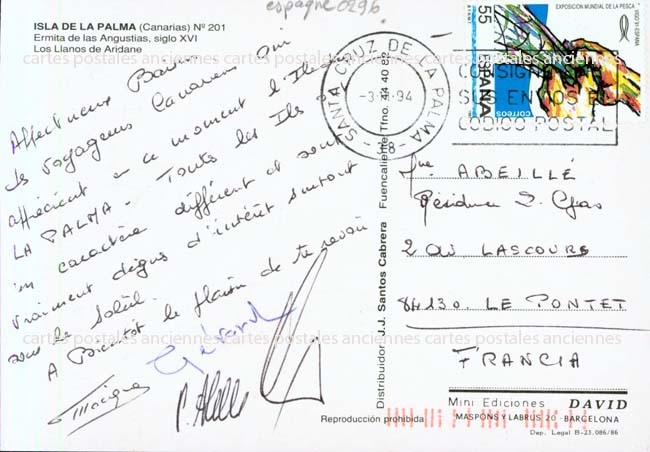 espagne0296
ISLA DE LA PALMA (Canarias) Nº 201
Ermita de las Angustias, siglo XVI
Los Llanos de Aridane
Affectueux
des voyageurs Canariens qui
apprécient en ce moment l'Ile de
LA PALMA - Toutes les Iles
un caractère différent et sont
vraiment dignes d'intérêt surtout
sous le soleil.
A Bientôt le plaisir de te revoir
Gérard
Distribuidor: J.J. Santos Cabrera Fuencaliente Tfno. 44 40 82
SANTA CRUZ DE LA PALMA
94
-38-
CONSIGNE EN
SUS ENVIOS EL
CODIGO POSTAL
EXPOSICION MUNDIAL DE LA PESCA
VIGO 91 ESPAÑA
55
ESPAÑA
correos
ABEILLÉ
Résidence
2 AV LASCOURS
84130. LE PONTET
FRANCIA
Mini Ediciones DAVID
MASPONS Y LABRUS 20 - BARCELONA
Dep. Legal B-23.086/86
Reproducción prohibida
cartes postales anciennes cartes postales anciennes cartes postales anciennes